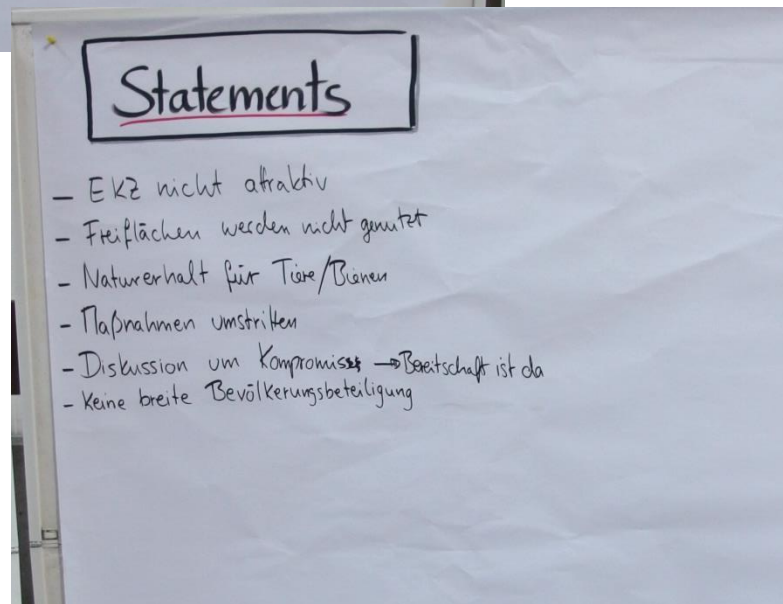 Statements
– EKZ nicht attraktiv
– Freiflächen werden nicht genutzt
– Naturerhalt für Tiere/Bienen
– Maßnahmen umstritten
– Diskussion um Kompromiss → Bereitschaft ist da
– Keine breite Bevölkerungsbeteiligung